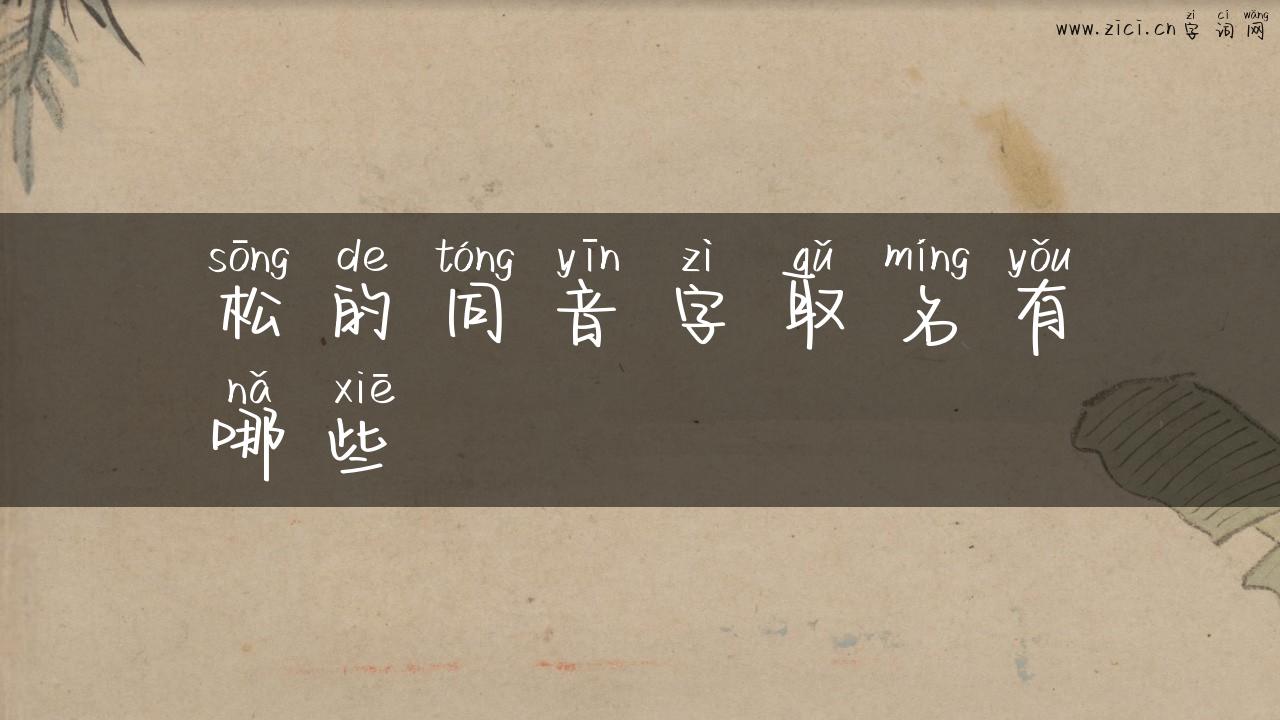 zì cí wǎng
www.zici.cn 字词网
sōng de tóng yīn zì qǔ míng yǒu
松的同音字取名有
nǎ xiē
哪些